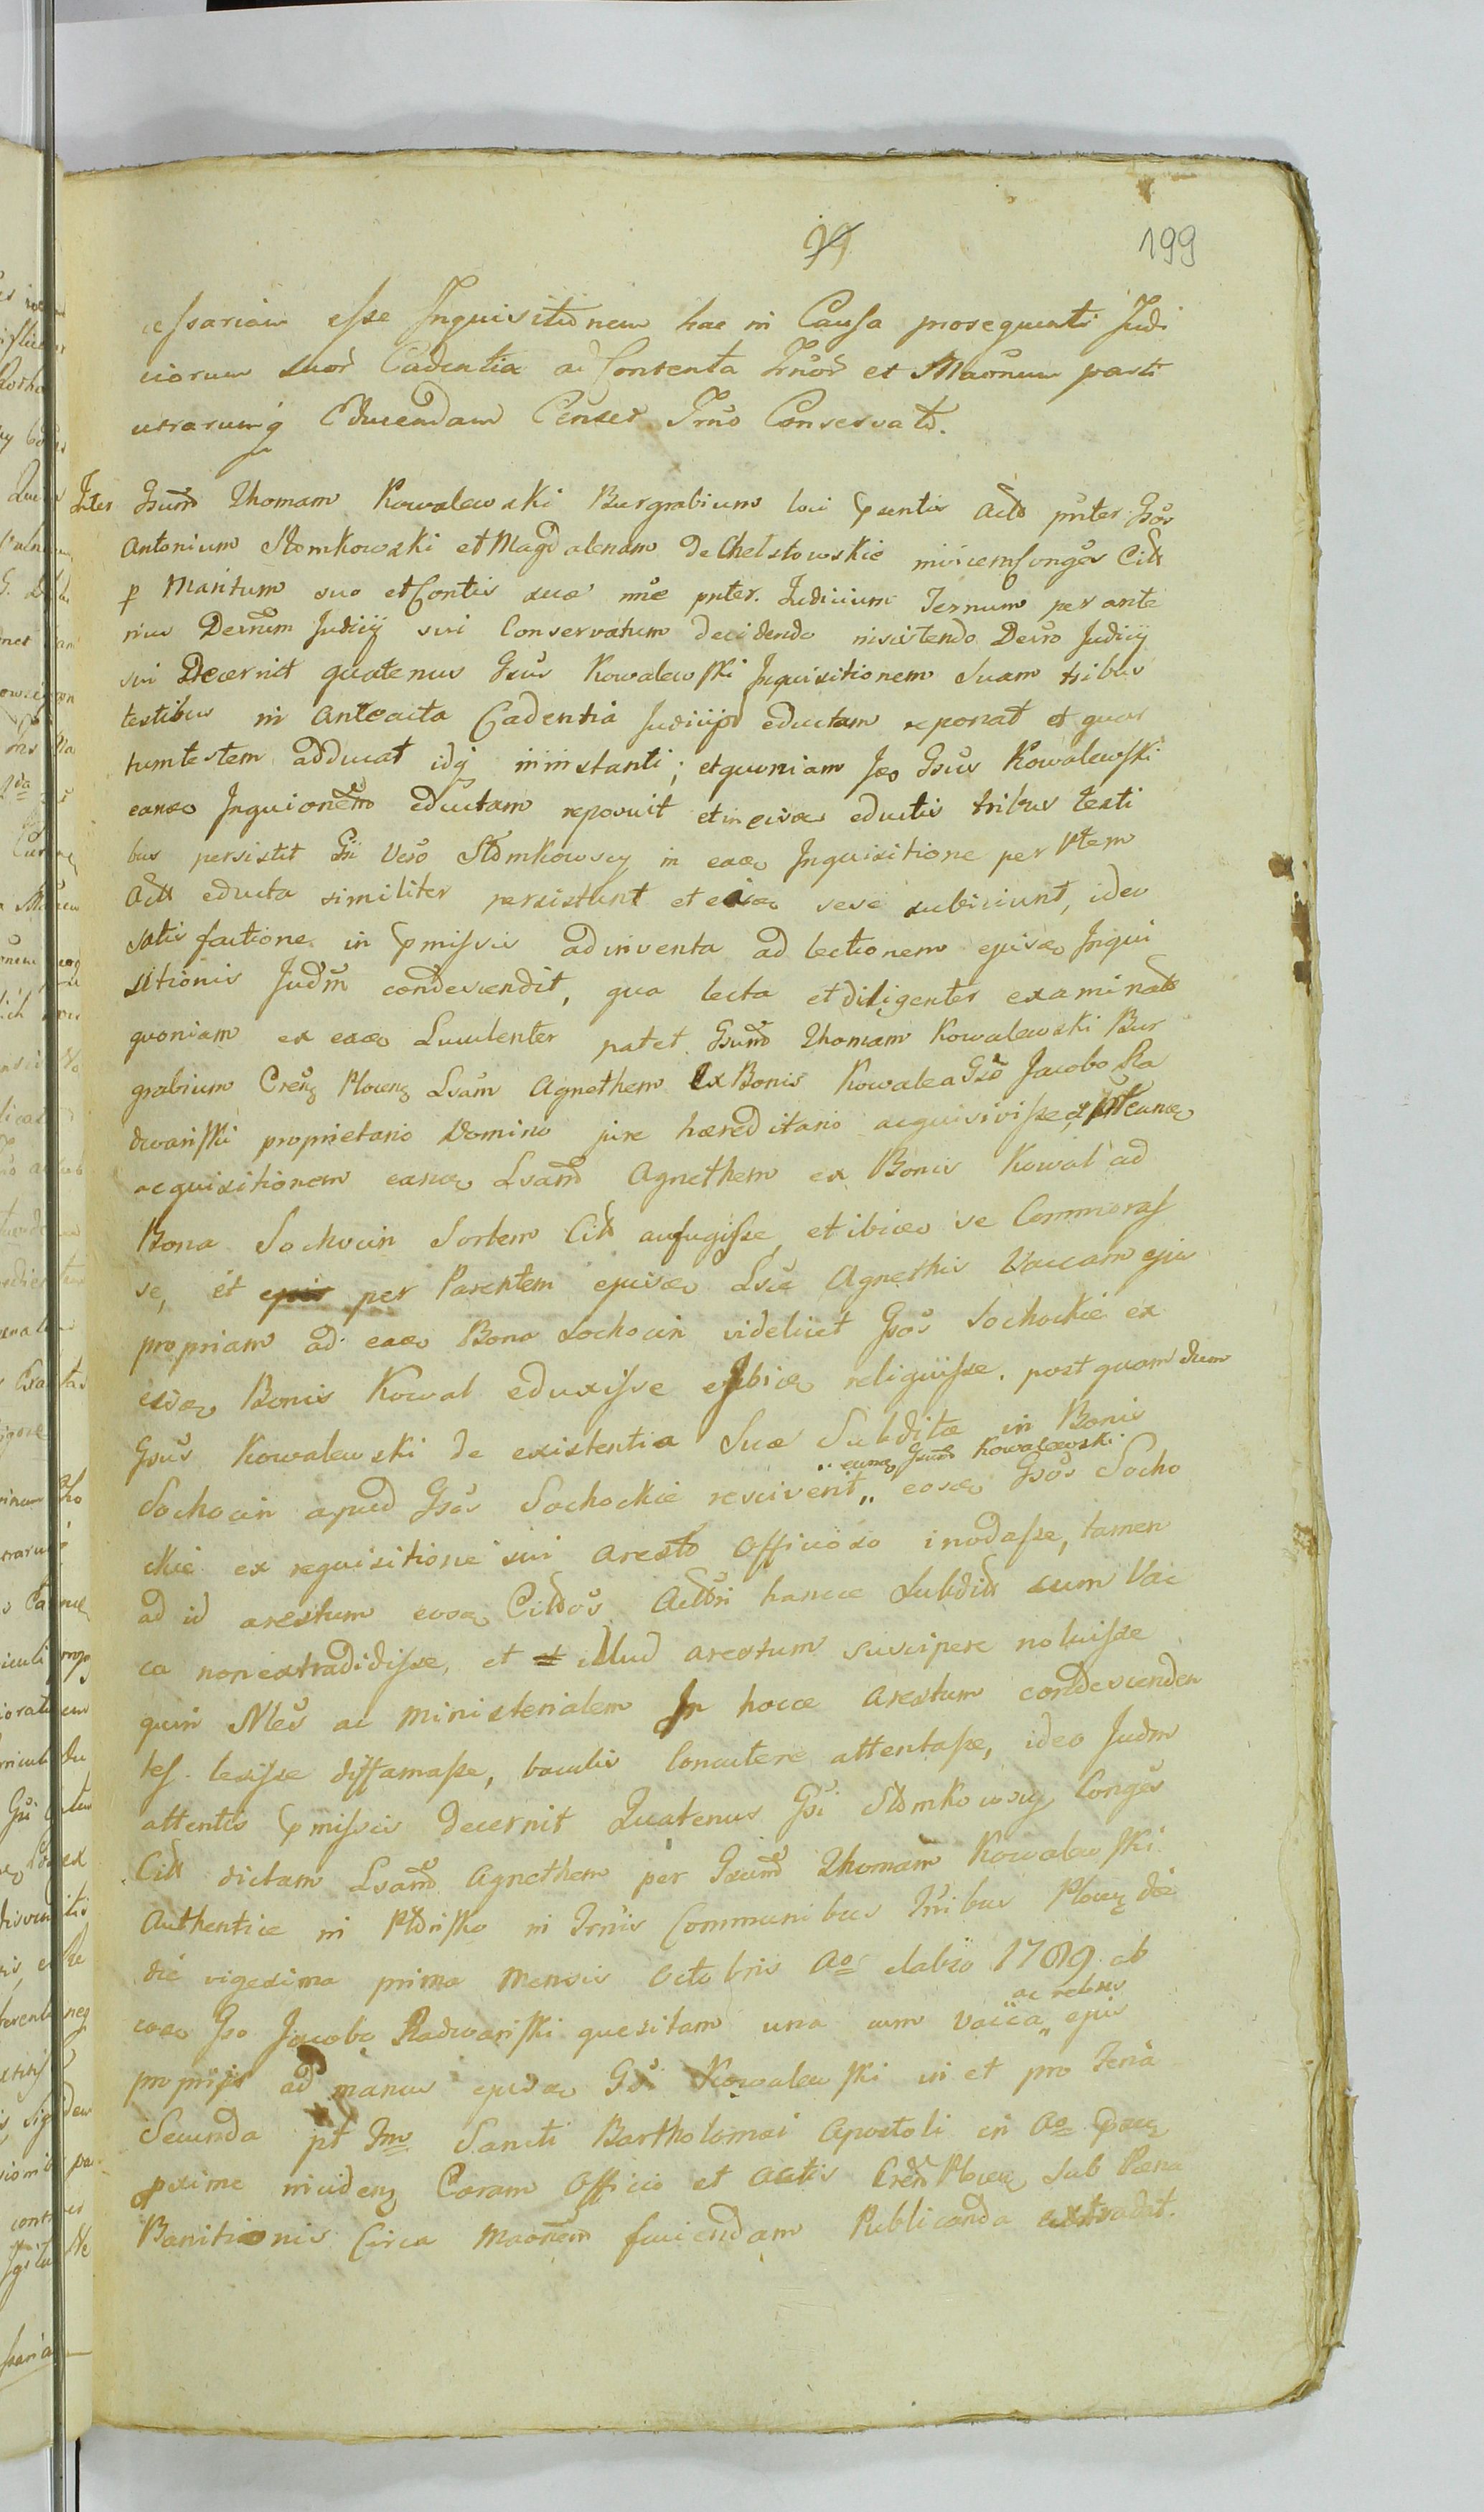 199
cessariam esse Inquisitionem hac in Causa prosequenti Judi
ciorum suor Cadentia ad Contenta Trnor et Maonum parti
utrarumq Educendam Censet Trno Conservato.
Inter Gsum Thomam Kowalewski Burgrabium loci psentis Acto pnter Gsos
Antonium Słomkowski et Magdalenam de Chelstowskie invicem Conges Citt
p Maritum suo et Consortis suæ nne pnter. Judicium Ternum per ante
rius Decrum Judicij sui Conservatum decidendo insistendo Decro Judicij
sui Decernit quatenus Gsus Kowalewski Inquisitionem Suam tribus
testibus in Anteacta Cadentia Judicijs eductam reponat et quar
tum testem adducat idq in instanti; et quoniam Gsus Kowalewski
eamq Inquionem eductam reposuit et in eisq eductis tribus testi
bus persistit Gsi Vero Słomkowscy in eaq Inquisitione per Ptem
Actt educta similiter persistunt et eiq sese subiiciunt, ideo
satisfactione in pmissis adinventa ad lectionem ejusq Inqui
sitionis Judm condescendit, qua lecta et diligenter examinata
quoniam ex eaq Luculenter patet Gsum Thomam Kowalewski Bur
grabium Crens Plocens Lsam Agnethem Ex Bonis Kowalea Gso Jacobo Ra
dwański proprietario Domino jure hæreditario acquisivisse et pt eamq
acquisitionem eamq Lsam Agnethem ex Bonis Kowal ad
Bona Sochocin Sortem Citt aufugisse, et ibiq se Commoras
se, et per Parentem ejusq Lsæ Agnethis Vaccam ejus
propriam ad eaq Bona Sochocin videlicet Gsos Sochockie ex
eisq Bonis Kowal eduxisse et ibiq reliquisse. postquam dum
Gsus Kowalewski de existentia Suæ Subditæ in Bonis
Sochocin apud Gsos Sochockie resciverit „ eumq Gsum Kowalewski „ eosq Gsos Socho
ckie ex requisitione sui Aresto Officioso inodasse, tamen
ad id arestum eosq Cittos Actori hance Subditt cum Vac
ca non extradidisse, et illud arestum suscipere noluisse
quin Nles ac Ministerialem In hocce Arestum condescenden
tes lesisse diffamasse, baculis Concutere attentasse, ideo Judm
attentis pmissis Decernit Quatenus Gsi Słomkowscy Conges
Citt dictam Lsam Agnethem per Gsum Thomam Kowalewski
Authentice in in Trnis Communibus Plocens
die vigesima prima Mensis Octobris Ao elabso 1789 ab
eoq Gso Jacobo Radwański quesitam una cum Vacca „ ac rebus „ ejus
proprijs ad manus ejusq Gsi Kowalewski in et pro Feria
Secunda pt Fm Sancti Bartholomæi Apostoli in Ao psen
pxime incidens Coram Officio et Actis Crens Plocens sub Pæna
Banitionis Circa Maonem faciendam Publicanda extradat.